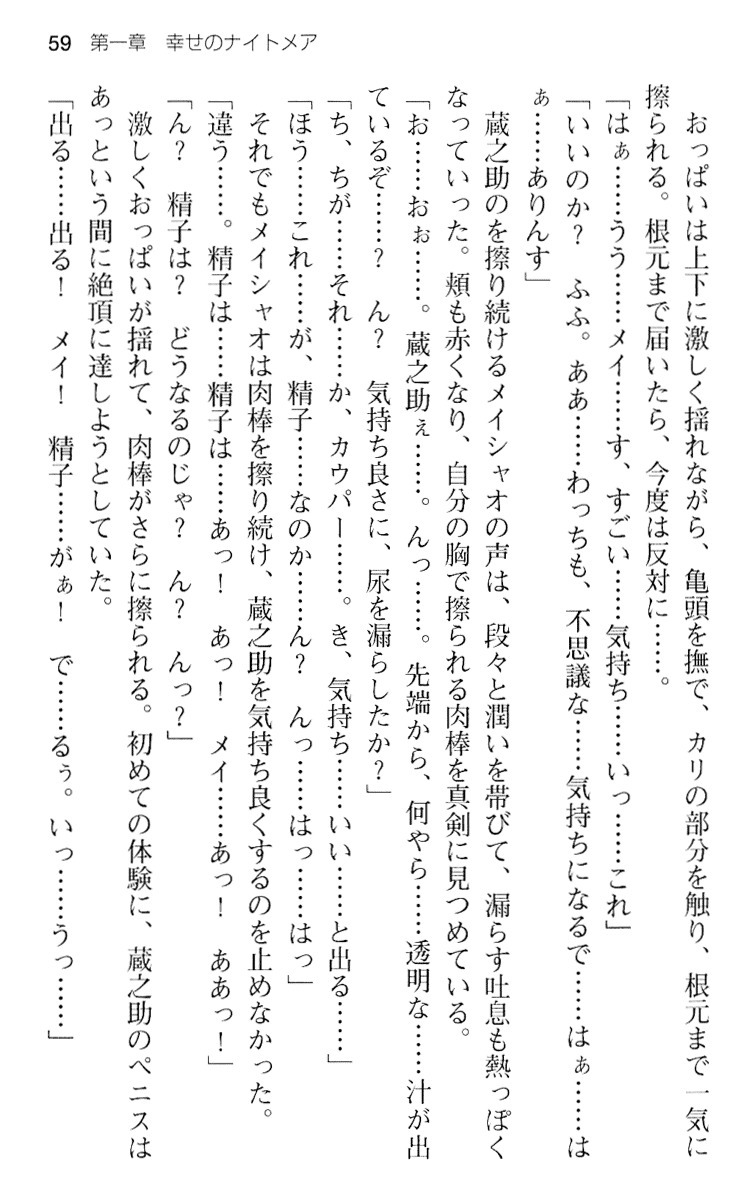 59 第一章 幸せのナイトメア
　おっぱいは上下に激しく揺れながら、亀頭を撫で、カリの部分を触り、根元まで一気に
擦られる。根元まで届いたら、今度は反対に……。
「はぁ……うう……メイ……す、すごい……気持ち……いっ……これ」
「いいのか？　ふふ。ああ……わっちも、不思議な……気持ちになるで……はぁ……は
ぁ……ありんす」
　蔵之助のを擦り続けるメイシャオの声は、段々と潤いを帯びて、漏らす吐息も熱っぽく
なっていった。頬も赤くなり、自分の胸で擦られる肉棒を真剣に見つめている。
「お……おぉ……。蔵之助ぇ……。んっ……。先端から、何やら……透明な……汁が出
ているぞ……？　ん？　気持ち良さに、尿を漏らしたか？」
「ち、ちが……それ……か、カウパー……。き、気持ち……いい……と出る……」
「ほう……これ……が、精子……なのか……ん？　んっ……はっ……はっ」
　それでもメイシャオは肉棒を擦り続け、蔵之助を気持ち良くするのを止めなかった。
「違う……。精子は……精子は……あっ！　あっ！　メイ……あっ！　ああっ！」
「ん？　精子は？　どうなるのじゃ？　ん？　んっ？」
　激しくおっぱいが揺れて、肉棒がさらに擦られる。初めての体験に、蔵之助のペニスは
あっという間に絶頂に達しようとしていた。
「出る……出る！　メイ！　精子……がぁ！　で……るぅ。いっ……うっ……」